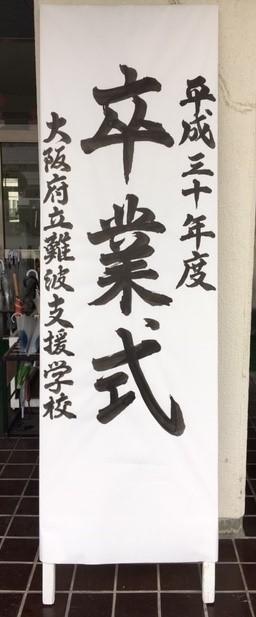 平成三十年度
卒業式
大阪府立難波支援学校